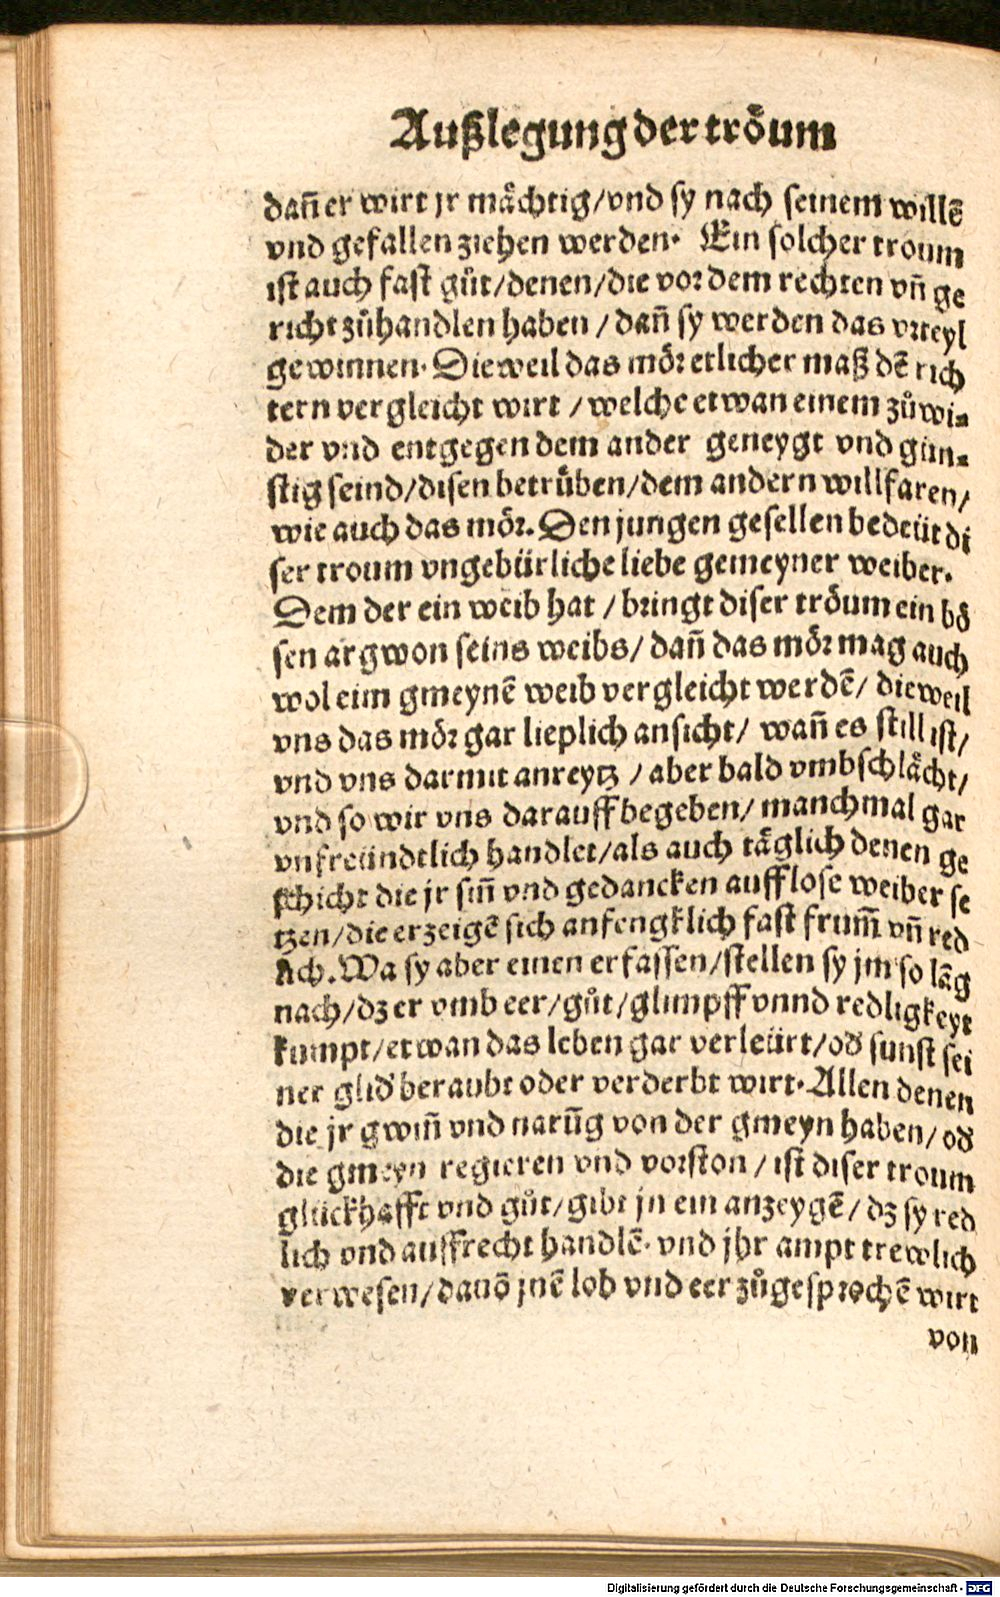 Außlegung der tröum
dañ er wirt jr mächtig/vnd sy nach seinem willẽ
vnd gefallen ziehen werden. Ein solcher troum
ist auch fast gůt/denen/die vor dem rechten vñ ge
richt zůhandlen haben / dañ sy werden das vrteyl
gewinnen. Dieweil das mör etlicher maß dẽ rich
tern vergleicht wirt / welche etwan einem zůwi-
der vnd entgegen dem ander geneygt vnd gün-
stig seind/disen betrüben/dem andern willfaren/
wie auch das mör. Den jungen gesellen bedeüt di
ser troum vngebürliche liebe gemeyner weiber.
Dem der ein weib hat / bringt diser tröum ein bö
sen argwon seins weibs/ dañ das mör mag auch
wol eim gmeynẽ weib vergleicht werdẽ/ dieweil
vns das mör gar lieplich ansicht/ wañ es still ist/
vnd vns darmit anreytz / aber bald vmbschlächt/
vnd so wir vns darauff begeben/ manchmal gar
vnfreündtlich handlet/als auch täglich denen ge
schicht die jr siñ vnd gedancken auff lose weiber se
tzen/die erzeigẽ sich anfengklich fast frum̃ vñ red
lich. Wa sy aber einen erfassen/stellen sy jm so lãg
nach/dz er vmb eer/gůt/glimpff vnnd redligkeyt
kumpt/etwan das leben gar verleürt/od' sunst sei
ner glid' beraubt oder verderbt wirt. Allen denen
die jr gwiñ vnd narũg von der gmeyn haben/ od'
die gmeyn regieren vnd vorston / ist diser troum
glückhafft vnd gůt/gibt jn ein anzeygẽ/ dz sy red
lich vnd auffrecht handlẽ. vnd jhr ampt trewlich
verwesen/dauõ jnẽ lob vnd eer zůgesprochẽ wirt
von
Digitalisierung gefördert durch die Deutsche Forschungsgemeinschaft - DFG